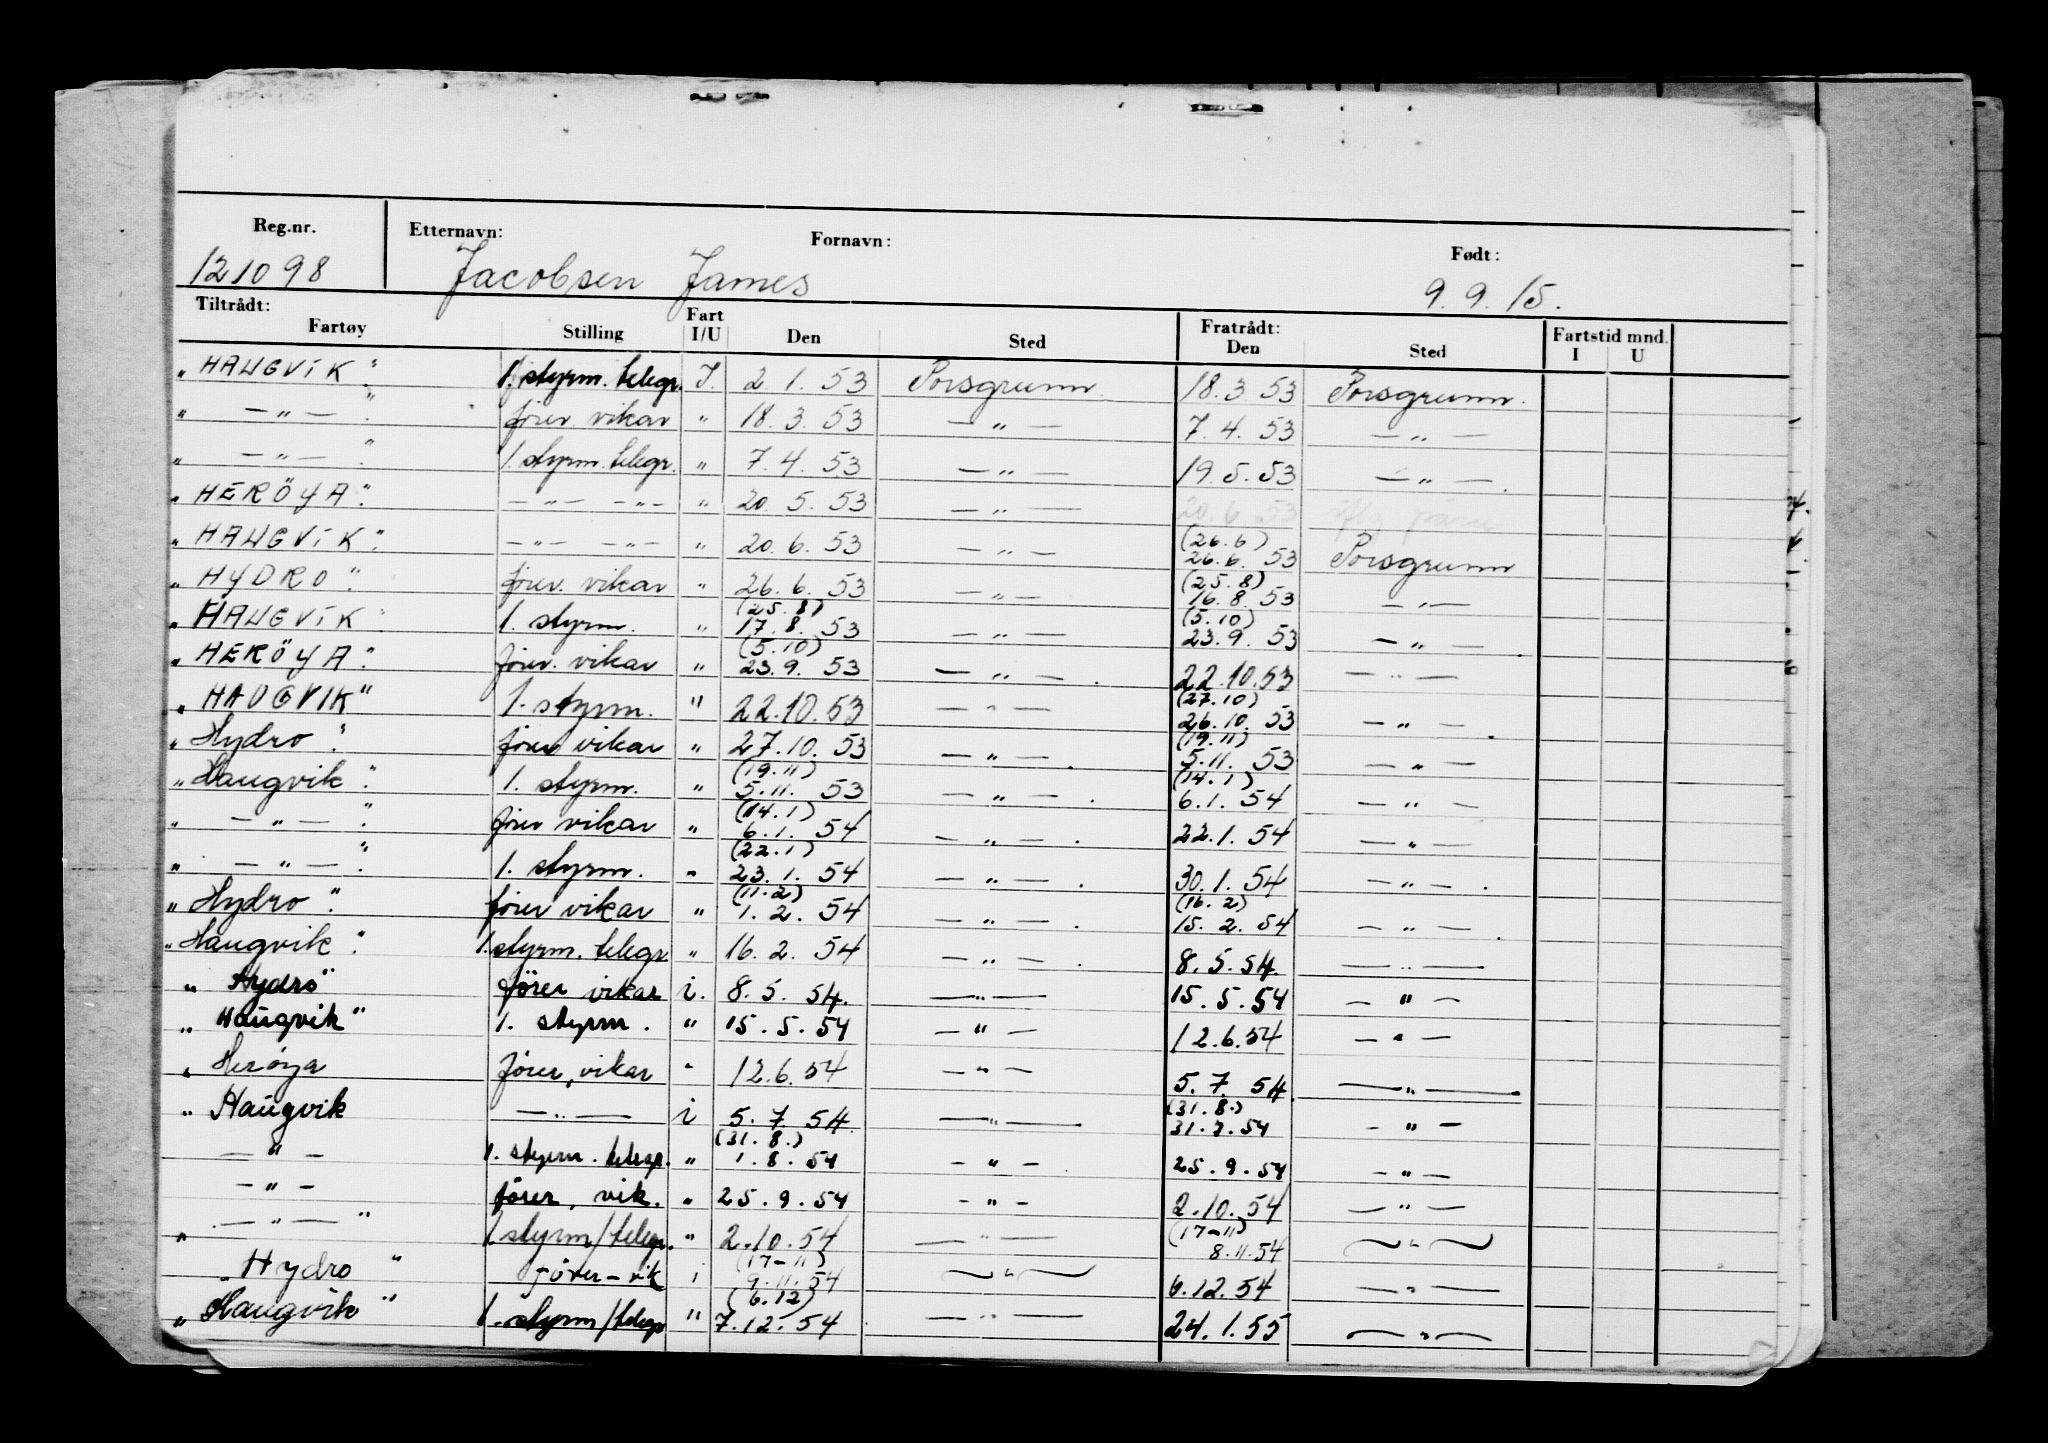 Reg.nr. Etternavn: Fornavn: Født:
121098 Jacobsen James 9. 9. 15.
Tiltrådt: Fart Fratrådt: Fartstid mnd.
Fartøy Stilling I/U Den Sted Den Sted I U
„ HAUGVIK " 1. styrm. telegr. I. 2 1. 53 Porsgrunn. 18. 3 53 Porsgrunn.
„ — „ — ". fører vikar „ 18. 3. 53 — „ — 7. 4. 53 — „ —
„ — „ — " 1. styrm. telegr. „ 7. 4. 53 — „ — 19. 5. 53 — „ — .
„ HERÖYA ". — „ — — „ — „ 20. 5. 53 — „ — 20. 6 53
„ HAUGVIK ". — „ — — „ — „ 20. 6. 53 — „ — (26. 6) 26. 6. 53 Porsgrunn
„ HYDRO ". fører. vikar „ 26. 6. 53 — „ — (25. 8) 16. 8. 53 — „ —
„ HAUGVIK " 1. styrm. „ (25. 8) 17. 8. 53 — „ — (5. 10) 23. 9. 53 — „ — .
„ HERÖYA ". fører. vikar „ (5. 10) 23. 9. 53 — „ — . 22. 10. 53 — „ —
„ HAUGVIK " 1. styrm. " 22. 10. 53 — „ — (27. 10) 26. 10. 53 — „ — .
„ Hydro ". fører vikar „ 27. 10. 53 — „ — . (19. 11) 5. 11. 53 — „ —
„ Haugvik ". 1. styrm. „ (19. 11) 5. 11. 53 — „ — . (14. 1) 6. 1. 54 — „ —
„ — „ — ". fører vikar „ (14. 1) 6. 1. 54 — „ — . 22. 1. 54 — „ —
„ — „ — ". 1. styrm. „ (22. 1) 23. 1. 54 — „ — . 30. 1. 54 — „ — .
„ Hydro ". fører vikar „ (11. 2) 1. 2. 54 — „ — . (16. 2) 15. 2. 54 — „ — .
„ Haugvik ". 1. styrm. telegr. „ 16. 2. 54 — „ — . 8. 5. 54. — „ —
„ Hydro " fører vikar i. 8. 5. 54. — „ — 15. 5. 54 — " —
„ Haugvik " 1. styrm. " 15. 5. 54 — " — 12. 6. 54 — " —
„ Herøya fører, vikar " 12. 6. 54 — " — 5. 7. 54. — „ — .
„ Haugvik — „ — i 5. 7. 54. — „ — (31. 8.) 31. 7. 54 — " —
— " — 1. styrm. telegr. „ (31. 8.) 1. 8. 54 — " — . 25. 9. 54 — " —
— " — fører, vik. „ 25. 9. 54 — " — 2. 10. 54 — " —
„ — „ — " 1 styrm/telegr. " 2. 10. 54 — „ — (17-11) 8. 11. 54 — „ —
„ Hydro " fører-vik i (17-11) 9. 11. 54 — „ — 6. 12. 54 — „ —
„ Haugvik " 1. styrm/telegr " (6. 12) 7. 12. 54 — „ — 24. 1. 55 — „ —